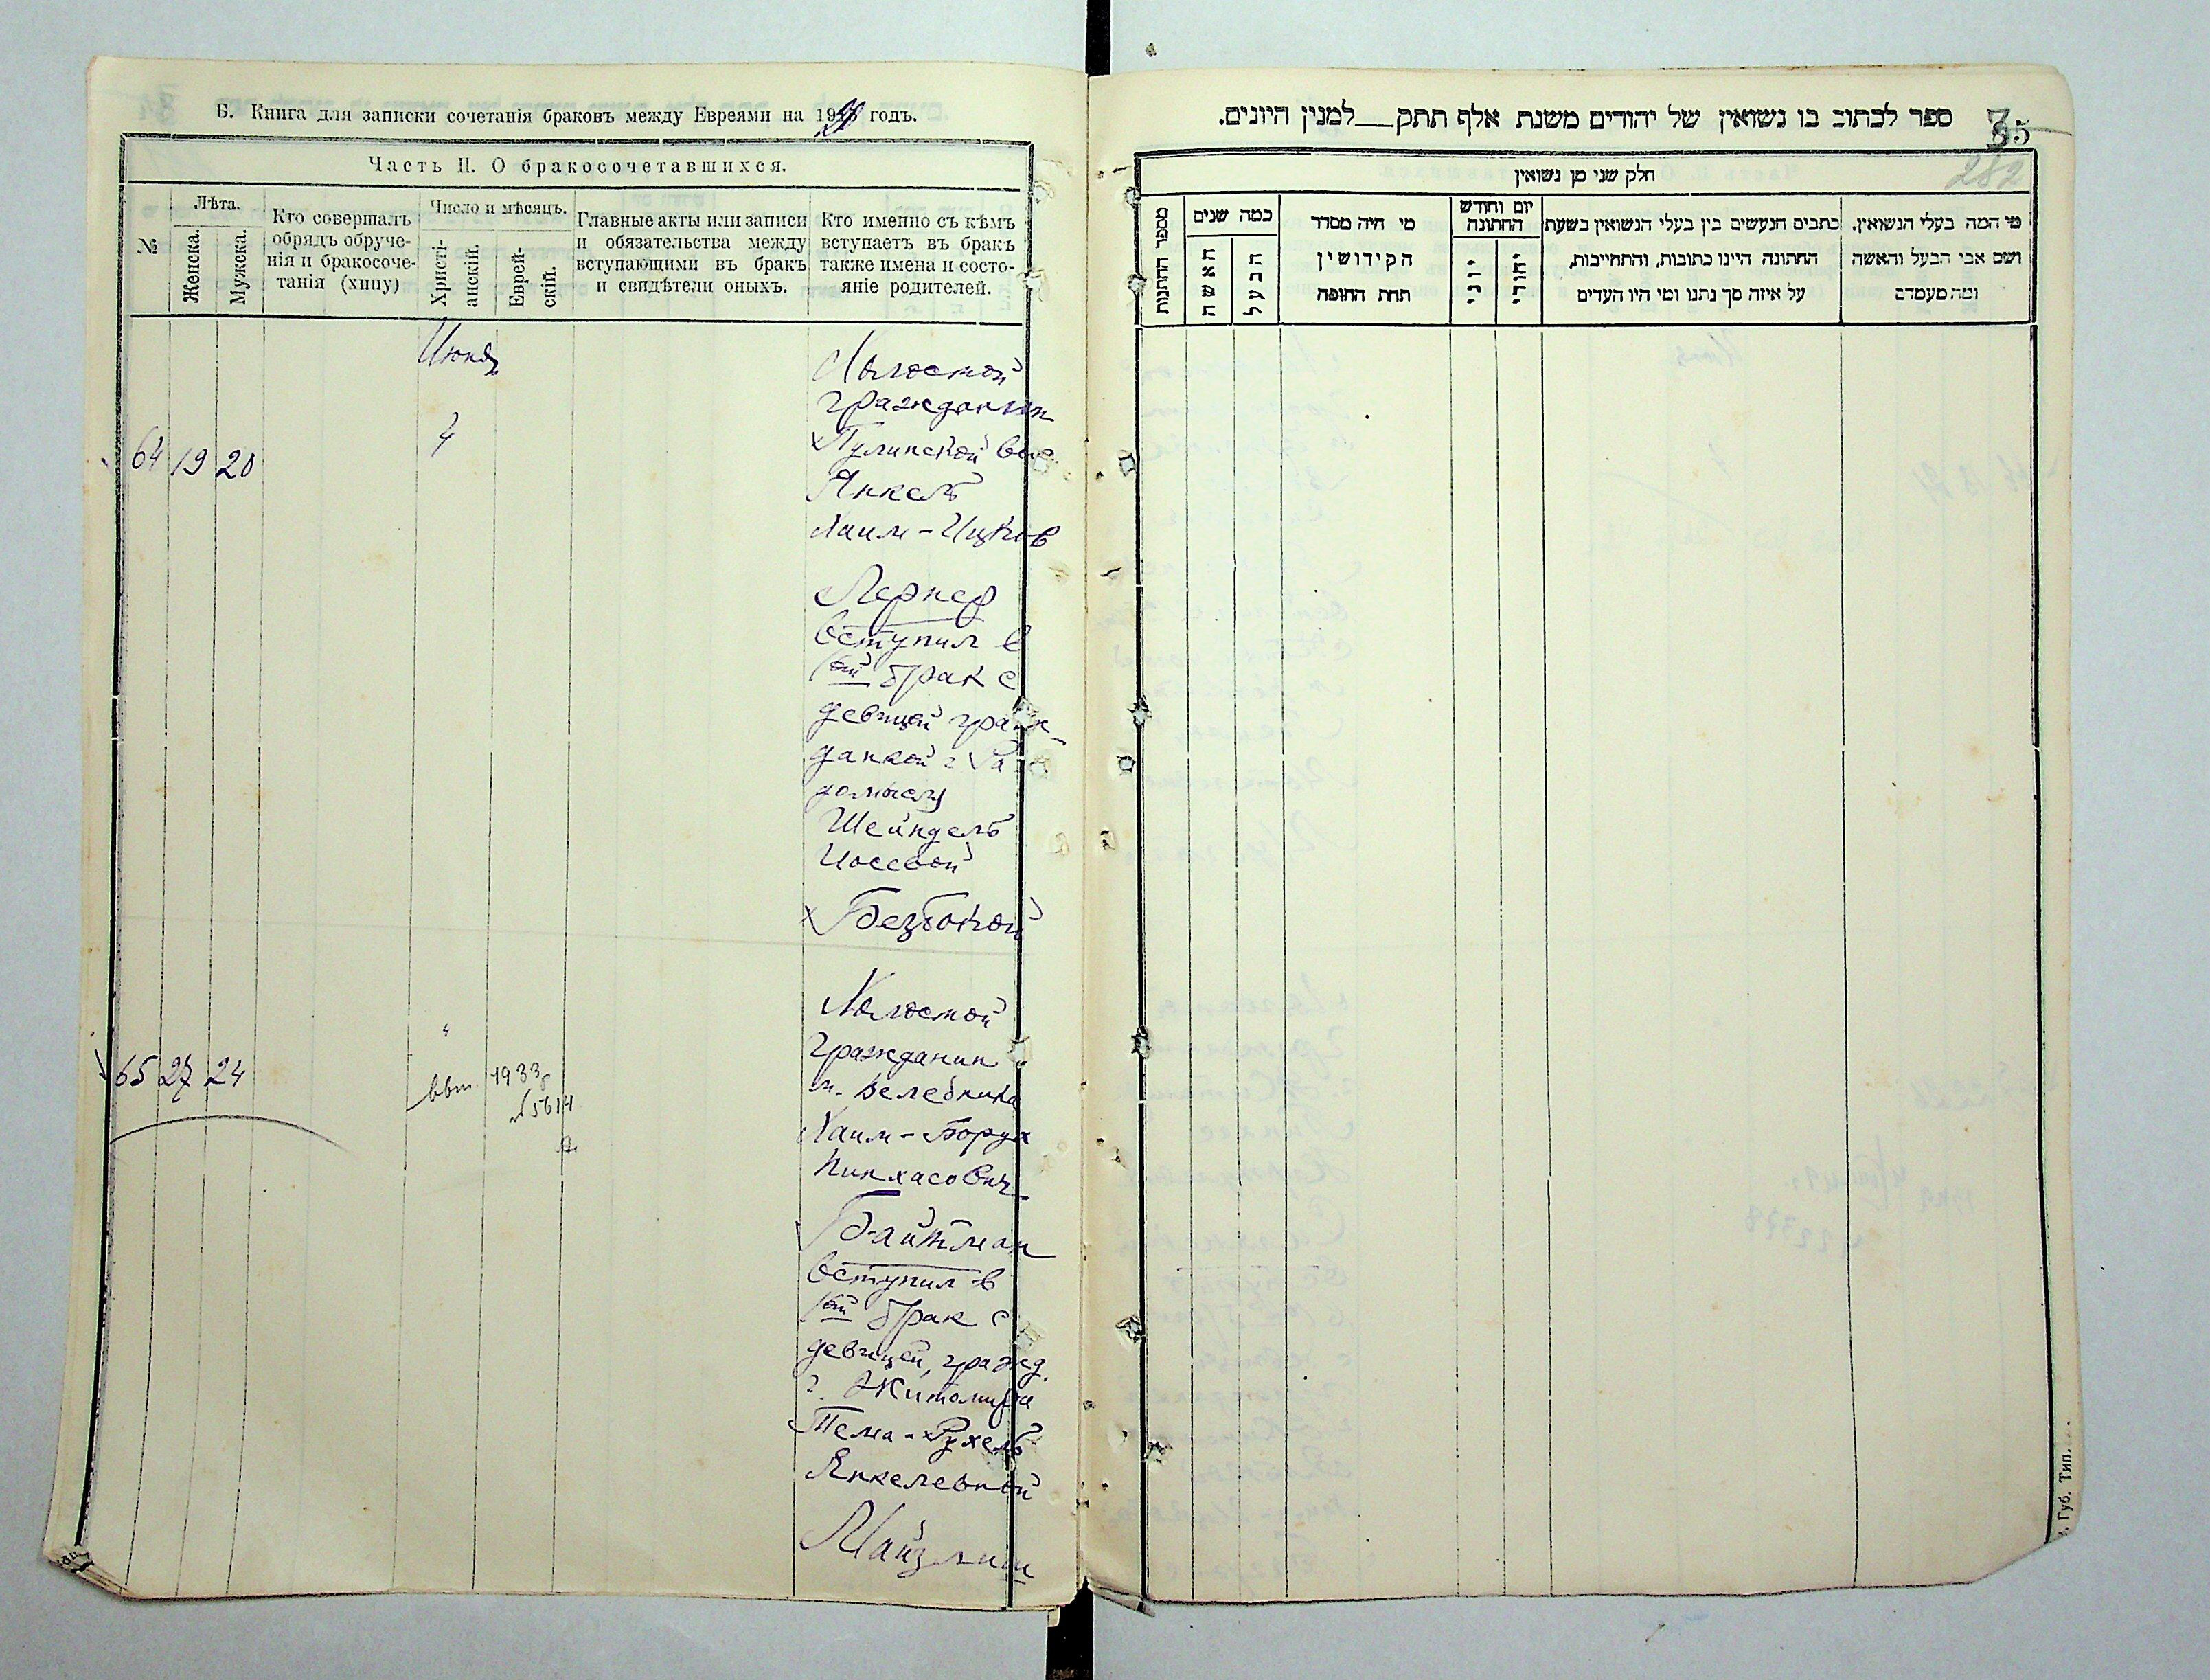 Б. Книга для записки сочетанія браковъ между Евреями на 19 годъ.
Часть II. О бракосочетавшихся.
№
Лѣта.
Женска.
Мужска.
Кто совершалъ
обрядъ обруче-
нія и бракосоче-
танія (хипу)
Число и мѣсяцъ.
Христі-
анскій.
Еврей-
скій.
Главные акты или записи
и обязательства между
вступающими въ бракъ
и свидѣтели оныхъ.
Кто именно съ кѣмъ
вступаетъ въ бракъ
также имена и состо-
яніе родителей.
Июня
4
64 19 20
Холостой
гражданин
Пулинской вол.
Янкель
Хаим-Ицков
Лернер
вступил в
1ый брак с
девицей граж-
данкой г Ра
домысл
Шейндель
Иоссевой
Безбокой
"
65 27 24
1933
№ 5614
Холостой
гражданин
м. Веледника
Хаим-Борух
Пинхасович
Байтман
вступил в
1ый брак с
девицей, гражд.
г. Житомира
Тема-Рухель
Янкелевной
Майзлиш
ספר לכתוב בו נשואין של יהודים משנת אלף תתק__למנין היונים.
85
282
חלק שני מן נשואין
מספר החתנות
כמה שנים
האשה
הבעל
מי היה מסדר
הקידושין
תחת החופה
יום וחודש
החתונה
יוני
יהודי
כתבים הנעשים בין בעלי הנשואין בשעת
החתונה היינו כתובות, והתחייבות,
על איזה סך נתנו ומי היו העדים
מי המה בעלי הנשואין,
ושם אבי הבעל והאשה
ומה מעמדם
Губ. Тип.